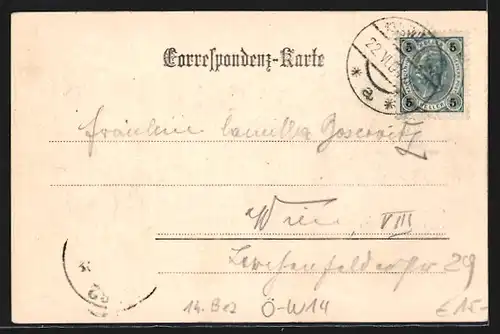 Correspondenz-Karte
5 5
5 HELLER 5
22.VI.0
* a *
Fräulein Camilla
Wien, VIII
Lerchenfelderstr 29
14. Bez Ö-W14 € 15-